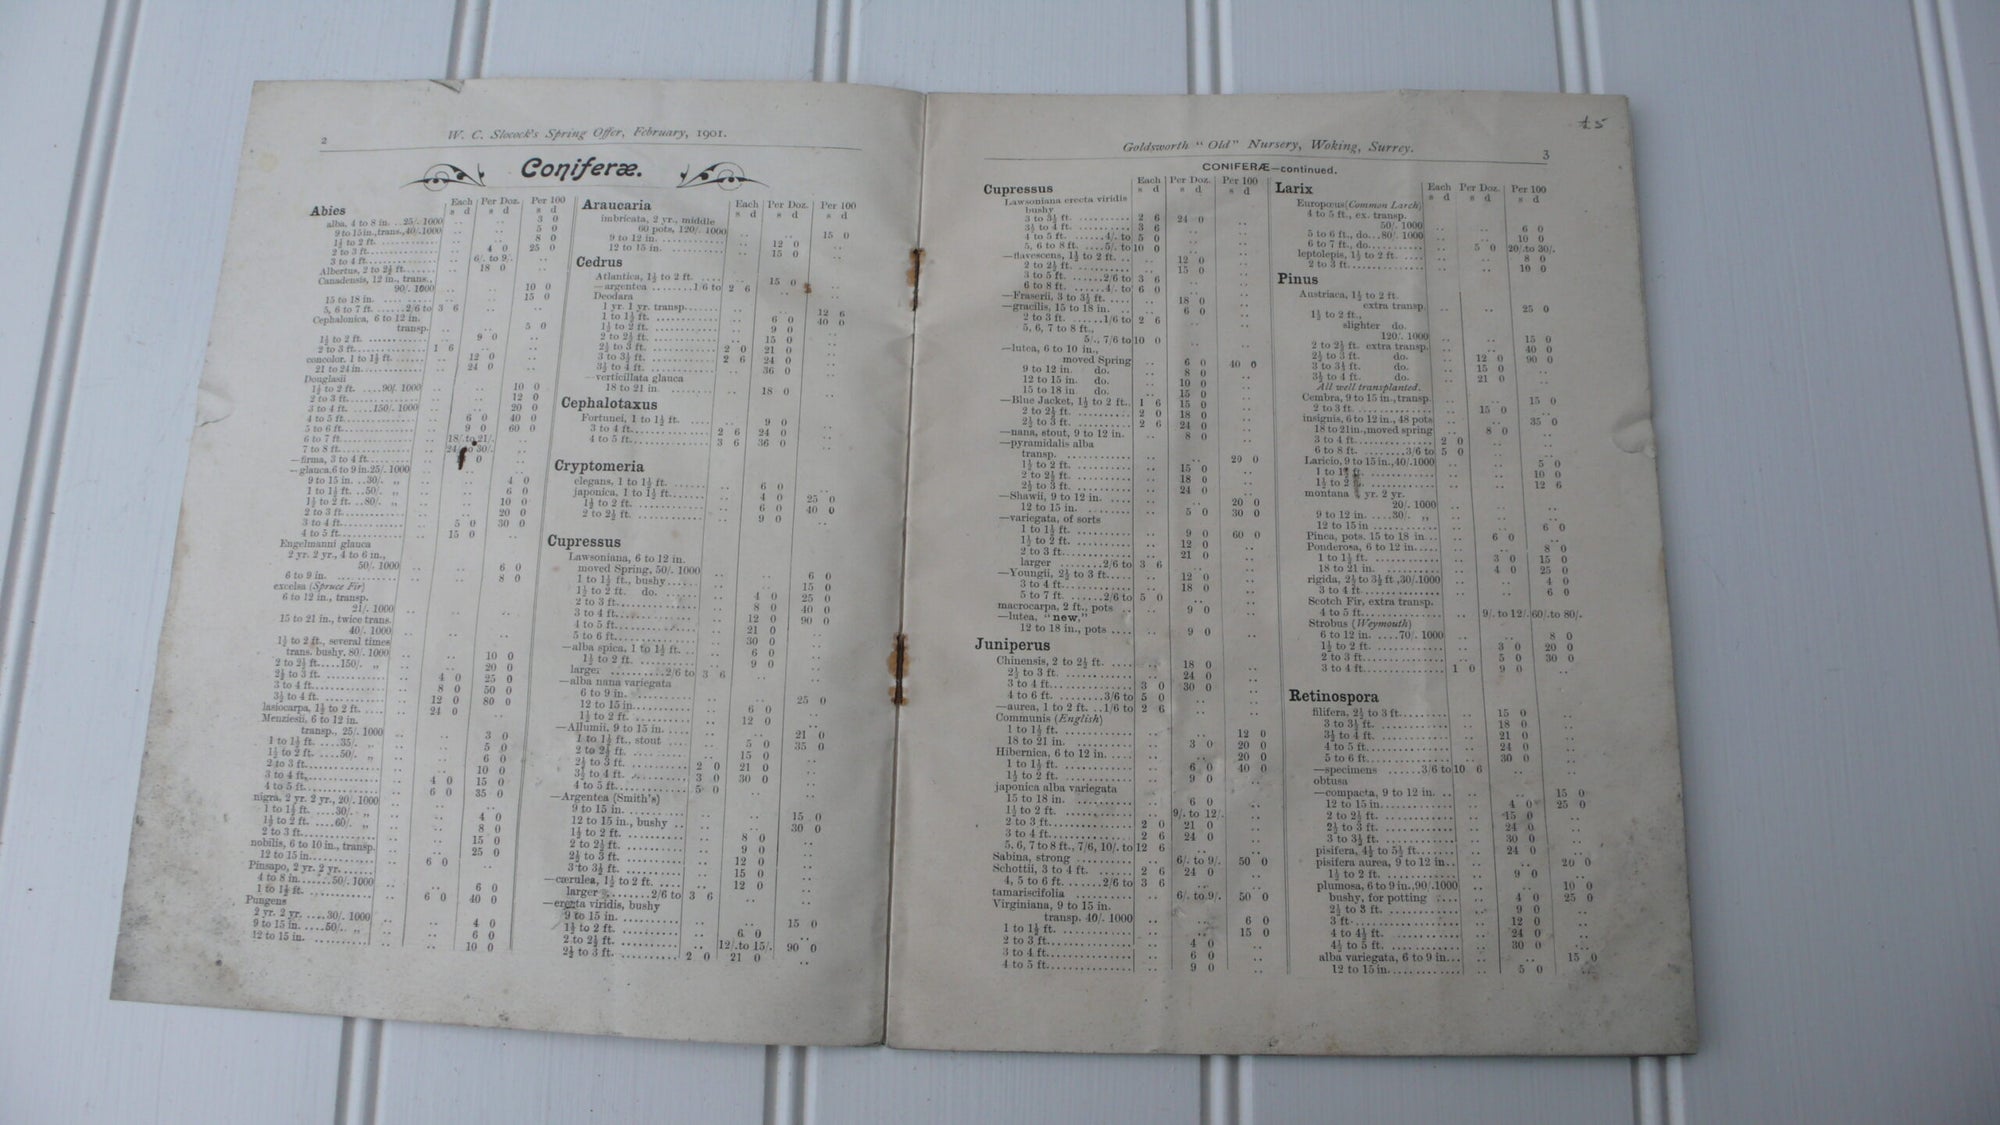 2
W. C. Slocock's Spring Offer, February, 1901.
Coniferæ.
Each Per Doz. Per 100
s d s d s d
Abies
alba, 4 to 8 in. ..25/. 1000 .. .. 3 0
9 to 15 in., trans., 40/. 1000 .. .. 5 0
1½ to 2 ft. .. .. 8 0
2 to 3 ft. .. 4 0 25 0
3 to 4 ft. .. 6/. to 9/. ..
Albertus, 2 to 2½ ft. .. 18 0 ..
Canadensis, 12 in., trans.,
90/. 1000 .. .. 10 0
15 to 18 in. .. .. 15 0
5, 6 to 7 ft. ......2/6 to 3 6
Cephalonica, 6 to 12 in.
transp. .. .. 5 0
1½ to 2 ft. .. 9 0 ..
2 to 3 ft. 1 6
concolor, 1 to 1½ ft. .. 12 0 ..
21 to 24 in. .. 24 0 ..
Douglasii
1½ to 2 ft. ....90/. 1000 .. .. 10 0
2 to 3 ft. .. .. 12 0
3 to 4 ft. ....150/. 1000 .. .. 20 0
4 to 5 ft. .. 6 0 40 0
5 to 6 ft. .. 9 0 60 0
6 to 7 ft. .. 18/. to 21/. ..
7 to 8 ft. .. 24/. to 30/. ..
—firma, 3 to 4 ft.
—glauca, 6 to 9 in. 25/. 1000 .. .. 4 0
9 to 15 in. ..30/. „ .. .. 6 0
1 to 1½ ft. ..50/. „ .. .. 10 0
1½ to 2 ft. ..80/. „
2 to 3 ft. .. .. 20 0
3 to 4 ft. .. 5 0 30 0
4 to 5 ft. .. 15 0 ..
Engelmanni glauca
2 yr. 2 yr., 4 to 6 in.,
50/. 1000 .. .. 6 0
6 to 9 in. .. .. 8 0
excelsa (Spruce Fir)
6 to 12 in., transp.
21/. 1000
15 to 21 in., twice trans.
40/. 1000
1½ to 2 ft., several times
trans. bushy, 80/. 1000 .. .. 10 0
2 to 2½ ft. .....150/. „ .. .. 20 0
2½ to 3 ft. .. 4 0 25 0
3 to 4 ft. .. 8 0 50 0
3½ to 4 ft. .. 12 0 80 0
lasiocarpa, 1½ to 2 ft. .. 24 0 ..
Menziesii, 6 to 12 in.
transp., 25/. 1000 .. .. 3 0
1 to 1½ ft. ....35/. „ .. .. 5 0
1½ to 2 ft. ....50/. „ .. .. 6 0
2 to 3 ft. .. .. 10 0
3 to 4 ft. .. 4 0 15 0
4 to 5 ft. .. 6 0 35 0
nigra, 2 yr. 2 yr., 20/. 1000
1 to 1½ ft. ....30/. „ .. .. 4 0
1½ to 2 ft. ....60/. „ .. .. 8 0
2 to 3 ft. .. .. 15 0
nobilis, 6 to 10 in., transp. .. .. 25 0
12 to 15 in. .. 6 0
Pinsapo, 2 yr. 2 yr.
4 to 8 in. ......50/. 1000 .. .. 6 0
1 to 1½ ft. .. 6 0 40 0
Pungens
2 yr. 2 yr. ....30/. 1000 .. .. 4 0
9 to 15 in. ....50/. „ .. .. 6 0
12 to 15 in. .. .. 10 0
Each Per Doz. Per 100
s d s d s d
Araucaria
imbricata, 2 yr., middle
60 pots, 120/. 1000 .. .. 15 0
9 to 12 in. .. 12 0 ..
12 to 15 in. .. 15 0 ..
Cedrus
Atlantica, 1½ to 2 ft. .. 15 0 ..
—argentea ........1/6 to 2 6
Deodara
1 yr. 1 yr. transp. .. .. 12 6
1 to 1½ ft. .. 6 0 40 0
1½ to 2 ft. .. 9 0 ..
2 to 2½ ft. .. 15 0 ..
2½ to 3 ft. 2 0 21 0 ..
3 to 3½ ft. 2 6 24 0 ..
3½ to 4 ft. .. 36 0 ..
—verticillata glauca
18 to 21 in. .. 18 0 ..
Cephalotaxus
Fortunei, 1 to 1½ ft. .. 9 0 ..
3 to 4 ft. 2 6 24 0 ..
4 to 5 ft. 3 6 36 0 ..
Cryptomeria
elegans, 1 to 1½ ft. .. 6 0 ..
japonica, 1 to 1½ ft. .. 4 0 25 0
1½ to 2 ft. .. 6 0 40 0
2 to 2½ ft. .. 9 0 ..
Cupressus
Lawsoniana, 6 to 12 in.
moved Spring, 50/. 1000 .. .. 6 0
1 to 1½ ft., bushy .. .. 15 0
1½ to 2 ft. do. .. 4 0 25 0
2 to 3 ft. .. 8 0 40 0
3 to 4 ft. .. 12 0 90 0
4 to 5 ft. .. 21 0 ..
5 to 6 ft. .. 30 0 ..
—alba spica, 1 to 1½ ft. .. 6 0 ..
1½ to 2 ft. .. 9 0 ..
larger ..........2/6 to 3 6
—alba nana variegata
6 to 9 in. .. .. 25 0
12 to 15 in. .. 6 0 ..
1½ to 2 ft. .. 12 0 ..
—Allumii, 9 to 15 in. .. .. 21 0
1 to 1½ ft., stout .. 5 0 35 0
2 to 2½ ft. .. 15 0 ..
2½ to 3 ft. 2 0 21 0 ..
3½ to 4 ft. 3 0 30 0 ..
4 to 5 ft. 5 0
—Argentea (Smith's)
9 to 15 in. .. .. 15 0
12 to 15 in., bushy .. .. 30 0
1½ to 2 ft. .. 8 0 ..
2 to 2½ ft. .. 9 0 ..
2½ to 3 ft. .. 12 0 ..
3 to 3½ ft. .. 15 0 ..
—cærulea, 1½ to 2 ft. .. 12 0 ..
larger ..........2/6 to 3 6
—erecta viridis, bushy
9 to 15 in. .. .. 15 0
1½ to 2 ft. .. 6 0 ..
2 to 2½ ft. .. 12/. to 15/. 90 0
2½ to 3 ft. 2 0 21 0 ..
Goldsworth "Old" Nursery, Woking, Surrey.
3
£5
CONIFERÆ—continued.
Each Per Doz. Per 100
s d s d s d
Cupressus
Lawsoniana erecta viridis
bushy
3 to 3½ ft. 2 6 24 0 ..
3½ to 4 ft. 3 6
4 to 5 ft. ......4/. to 5 0
5, 6 to 8 ft. ....5/. to 10 0
—flavescens, 1½ to 2 ft. .. 12 0 ..
2 to 2½ ft. .. 15 0 ..
3 to 5 ft. ......2/6 to 3 6
6 to 8 ft. ......4/. to 6 0
—Fraserii, 3 to 3½ ft. .. 18 0 ..
—gracilis, 15 to 18 in. .. 6 0 ..
2 to 3 ft. ......1/6 to 2 6
5, 6, 7 to 8 ft.,
5/., 7/6 to 10 0
—lutea, 6 to 10 in.,
moved Spring .. 6 0 40 0
9 to 12 in. do. .. 8 0 ..
12 to 15 in. do. .. 10 0 ..
15 to 18 in do. .. 15 0 ..
—Blue Jacket, 1½ to 2 ft. 1 6 15 0 ..
2 to 2½ ft. 2 0 18 0 ..
2½ to 3 ft. 2 6 24 0 ..
—nana, stout, 9 to 12 in. .. 8 0 ..
—pyramidalis alba
transp. .. .. 20 0
1½ to 2 ft. .. 15 0 ..
2 to 2½ ft. .. 18 0 ..
2½ to 3 ft. .. 24 0 ..
—Shawii, 9 to 12 in. .. .. 20 0
12 to 15 in. .. 5 0 30 0
—variegata, of sorts
1 to 1½ ft. .. 9 0 60 0
1½ to 2 ft. .. 12 0 ..
2 to 3 ft. .. 21 0 ..
larger ........2/6 to 3 6
—Youngii, 2½ to 3 ft. .. 12 0 ..
3 to 4 ft. .. 18 0 ..
5 to 7 ft. ......2/6 to 5 0
macrocarpa, 2 ft., pots .. 9 0 ..
—lutea, "new,"
12 to 18 in., pots .. 9 0 ..
Juniperus
Chinensis, 2 to 2½ ft. .. 18 0 ..
2½ to 3 ft. .. 24 0 ..
3 to 4 ft. 3 0 30 0 ..
4 to 6 ft. ........3/6 to 5 0
—aurea, 1 to 2 ft. ..1/6 to 2 6
Communis (English)
1 to 1½ ft. .. .. 12 0
18 to 21 in. .. 3 0 20 0
Hibernica, 6 to 12 in. .. .. 20 0
1 to 1½ ft. .. 6 0 40 0
1½ to 2 ft. .. 9 0 ..
japonica alba variegata
15 to 18 in. .. 6 0 ..
1½ to 2 ft. .. 9/. to 12/. ..
2 to 3 ft. 2 0 21 0 ..
3 to 4 ft. 2 6 24 0 ..
5, 6, 7 to 8 ft., 7/6, 10/. to 12 6
Sabina, strong .. 6/. to 9/. 50 0
Schottii, 3 to 4 ft. 2 6 24 0 ..
4, 5 to 6 ft. ......2/6 to 3 6
tamariscifolia .. 6/. to 9/. 50 0
Virginiana, 9 to 15 in.
transp. 40/. 1000 .. .. 6 0
1 to 1½ ft. .. .. 15 0
2 to 3 ft. .. 4 0 ..
3 to 4 ft. .. 6 0 ..
4 to 5 ft. .. 9 0 ..
Each Per Doz. Per 100
s d s d s d
Larix
Europœus (Common Larch)
4 to 5 ft., ex. transp.
50/. 1000 .. .. 6 0
5 to 6 ft., do...80/. 1000 .. .. 10 0
6 to 7 ft., do. .. 5 0 20/. to 30/.
leptolepis, 1½ to 2 ft. .. .. 8 0
2 to 3 ft. .. .. 10 0
Pinus
Austriaca, 1½ to 2 ft.
extra transp. .. .. 25 0
1½ to 2 ft.,
slighter do.
120/. 1000 .. .. 15 0
2 to 2½ ft. extra transp. .. .. 40 0
2½ to 3 ft. do. .. 12 0 90 0
3 to 3½ ft. do. .. 15 0 ..
3½ to 4 ft. do. .. 21 0 ..
All well transplanted.
Cembra, 9 to 15 in., transp. .. .. 15 0
2 to 3 ft. .. 15 0 ..
insignis, 6 to 12 in., 48 pots .. .. 35 0
18 to 21 in., moved spring .. 8 0 ..
3 to 4 ft. 2 0
6 to 8 ft. ........3/6 to 5 0
Laricio, 9 to 15 in., 40/. 1000 .. .. 5 0
1 to 1½ ft. .. .. 10 0
1½ to 2 ft. .. .. 12 6
montana yr. 2 yr.
20/. 1000
9 to 12 in. ....30/. „
12 to 15 in .. .. 6 0
Pinca, pots. 15 to 18 in. .. 6 0 ..
Ponderosa, 6 to 12 in. .. .. 8 0
1 to 1½ ft. .. 3 0 15 0
18 to 21 in. .. 4 0 25 0
rigida, 2½ to 3½ ft., 30/. 1000 .. .. 4 0
3 to 4 ft. .. .. 6 0
Scotch Fir, extra transp.
4 to 5 ft. .. 9/. to 12/. 60/. to 80/.
Strobus (Weymouth)
6 to 12 in. ....70/. 1000 .. .. 8 0
1½ to 2 ft. .. 3 0 20 0
2 to 3 ft. .. 5 0 30 0
3 to 4 ft. 1 0 9 0 ..
Retinospora
filifera, 2½ to 3 ft. .. 15 0 ..
3 to 3½ ft. .. 18 0 ..
3½ to 4 ft. .. 21 0 ..
4 to 5 ft. .. 24 0 ..
5 to 6 ft. .. 30 0 ..
—specimens ......3/6 to 10 6
obtusa
—compacta, 9 to 12 in. .. .. 15 0
12 to 15 in. .. 4 0 25 0
2 to 2½ ft. .. 15 0 ..
2½ to 3 ft. .. 24 0 ..
3 to 3½ ft. .. 30 0 ..
pisifera, 4½ to 5½ ft. .. 24 0 ..
pisifera aurea, 9 to 12 in. .. .. 20 0
1½ to 2 ft. .. 9 0 ..
plumosa, 6 to 9 in., 90/. 1000 .. .. 10 0
bushy, for potting .. 4 0 25 0
2½ to 3 ft. .. 9 0 ..
3 ft. .. 12 0 ..
4 to 4½ ft. .. 24 0 ..
4½ to 5 ft. .. 30 0 ..
alba variegata, 6 to 9 in. .. .. 15 0
12 to 15 in. .. 5 0 ..